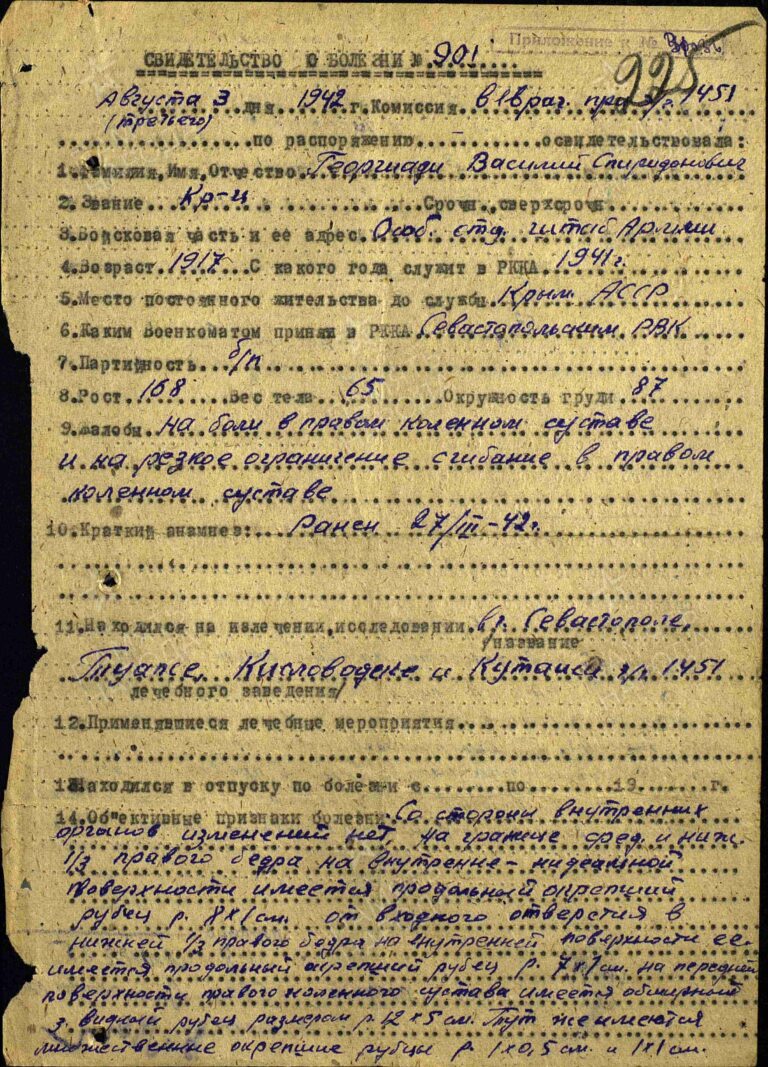 Приложение к №
225
СВИДЕТЕЛЬСТВО О БОЛЕЗНИ № 901
Августа 3 дня 1942 г. Комиссия в/враг. при г/г 1451
(третьего)
по распоряжению освидетельствовала:
1. Фамилия, Имя, Отчество Георгиади Василий Спиридонович
2. Звание Кр-ц Срочн. сверхсрочн
3. Войсковая часть и ее адрес. Особ. отд. штаб Армии
4. Возраст. 1917 С какого года служит в РККА 1941 г.
5. Место постоянного жительства до службы Крым АССР
6. Каким Военкоматом принят в РККА Севастопольским РВК
7. Партийность б/п
8. Рост 168 Вес тела 65 Окружность груди 87
9. Жалобы на боли в правом коленном суставе
и на резкое ограничение сгибание в правом
коленном суставе
10. Краткий анамнез: Ранен 27/III-42 г.
11. Находился на излечении, исследовании в г. Севастополе,
/название
Туапсе, Кисловодске и Кутаиси г/г 1451
лечебного заведения/
12. Применявшиеся лечебные мероприятия
13. Находился в отпуску по болезни с по 19 г.
14. Об"ективные признаки болезни Со стороны внутренних
органов изменений нет, на границе сред. и ниж.
1/3 правого бедра на внутренне-
поверхности имеется продольный окрепший
рубец р. 8х1 см. от входного отверстия в
нижней 1/3 правого бедра на внутренней поверхности ее
имеется продольный окрепший рубец р. 7х1 см. на передней
поверхности правого коленного сустава имеется обширный
рубец размером р 12 х 5 см. Тут же имеются
множественные окрепшие рубцы р. 1х0,5 см. и 1х1 см.